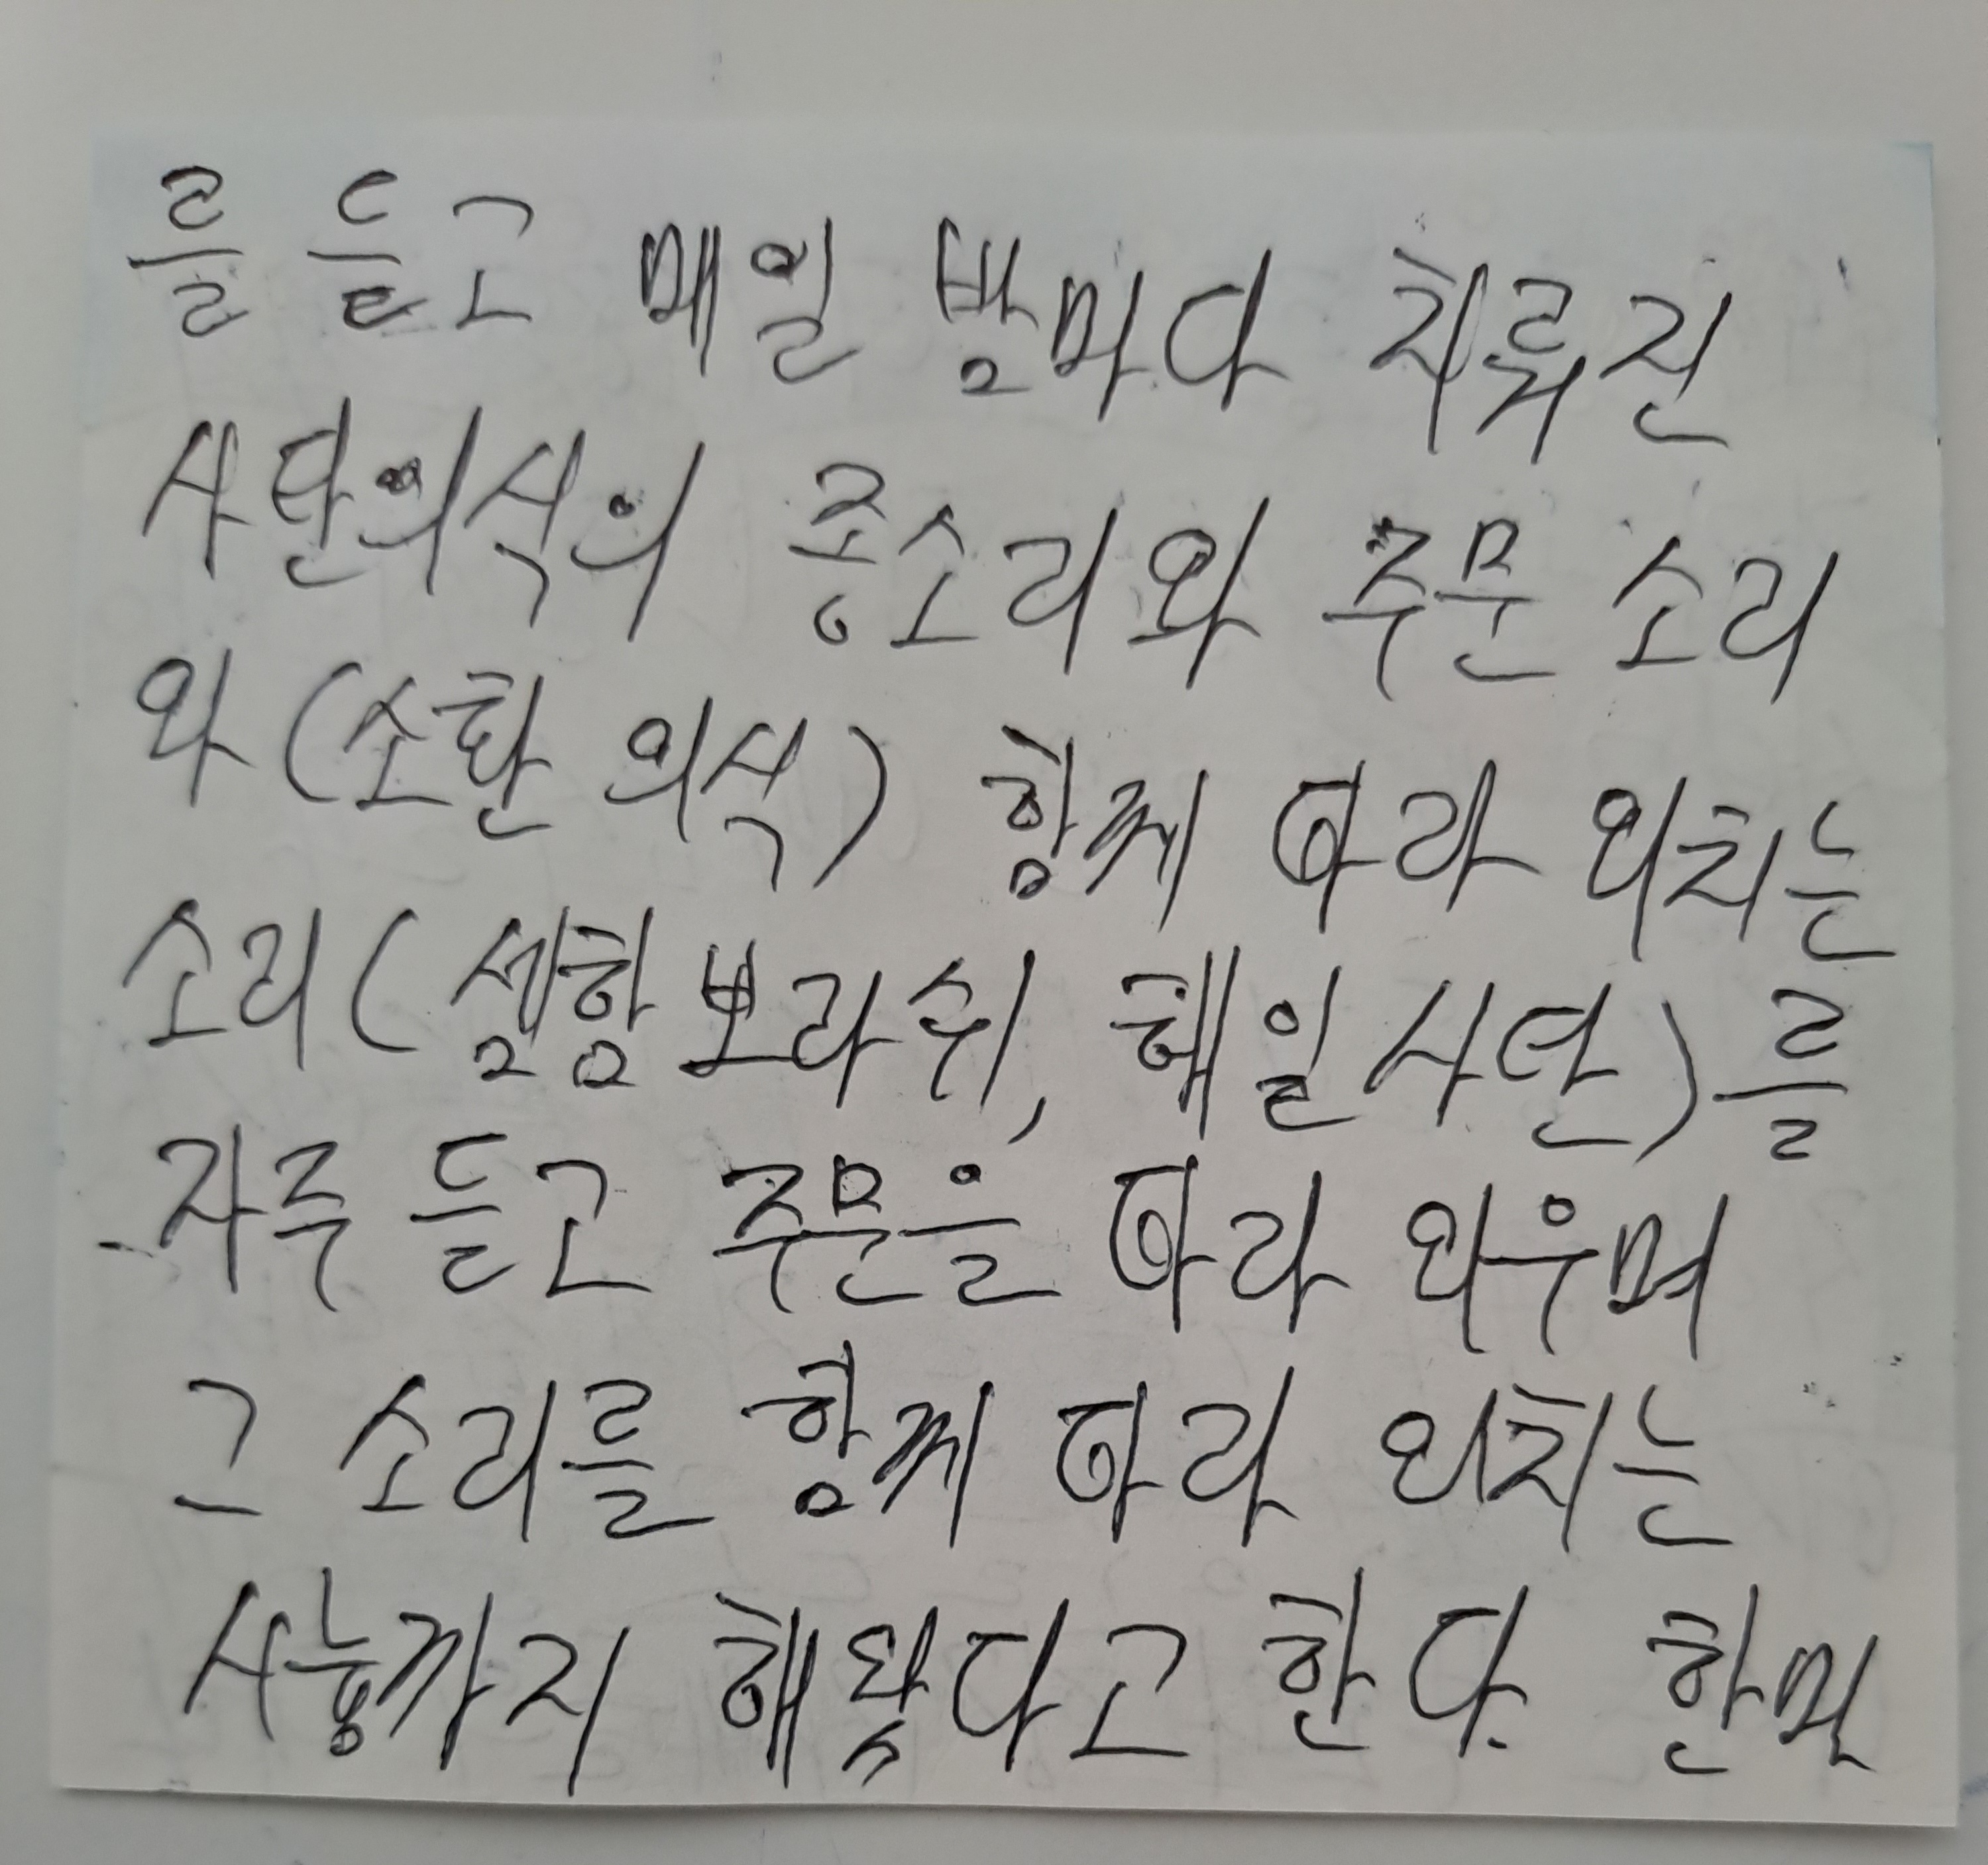 를 듣고 매일 밤마다 치뤄진
사탄의식의 종소리와 주문 소리
와 (소환 의식) 함께 따라 외치는
소리 ( 셈함보라쉬, 헤일사탄)를
자주 듣고 주문을 따라 외우며
그 소리를 함께 따라 외치는
시늉까지 해왔다고 한다. 한번